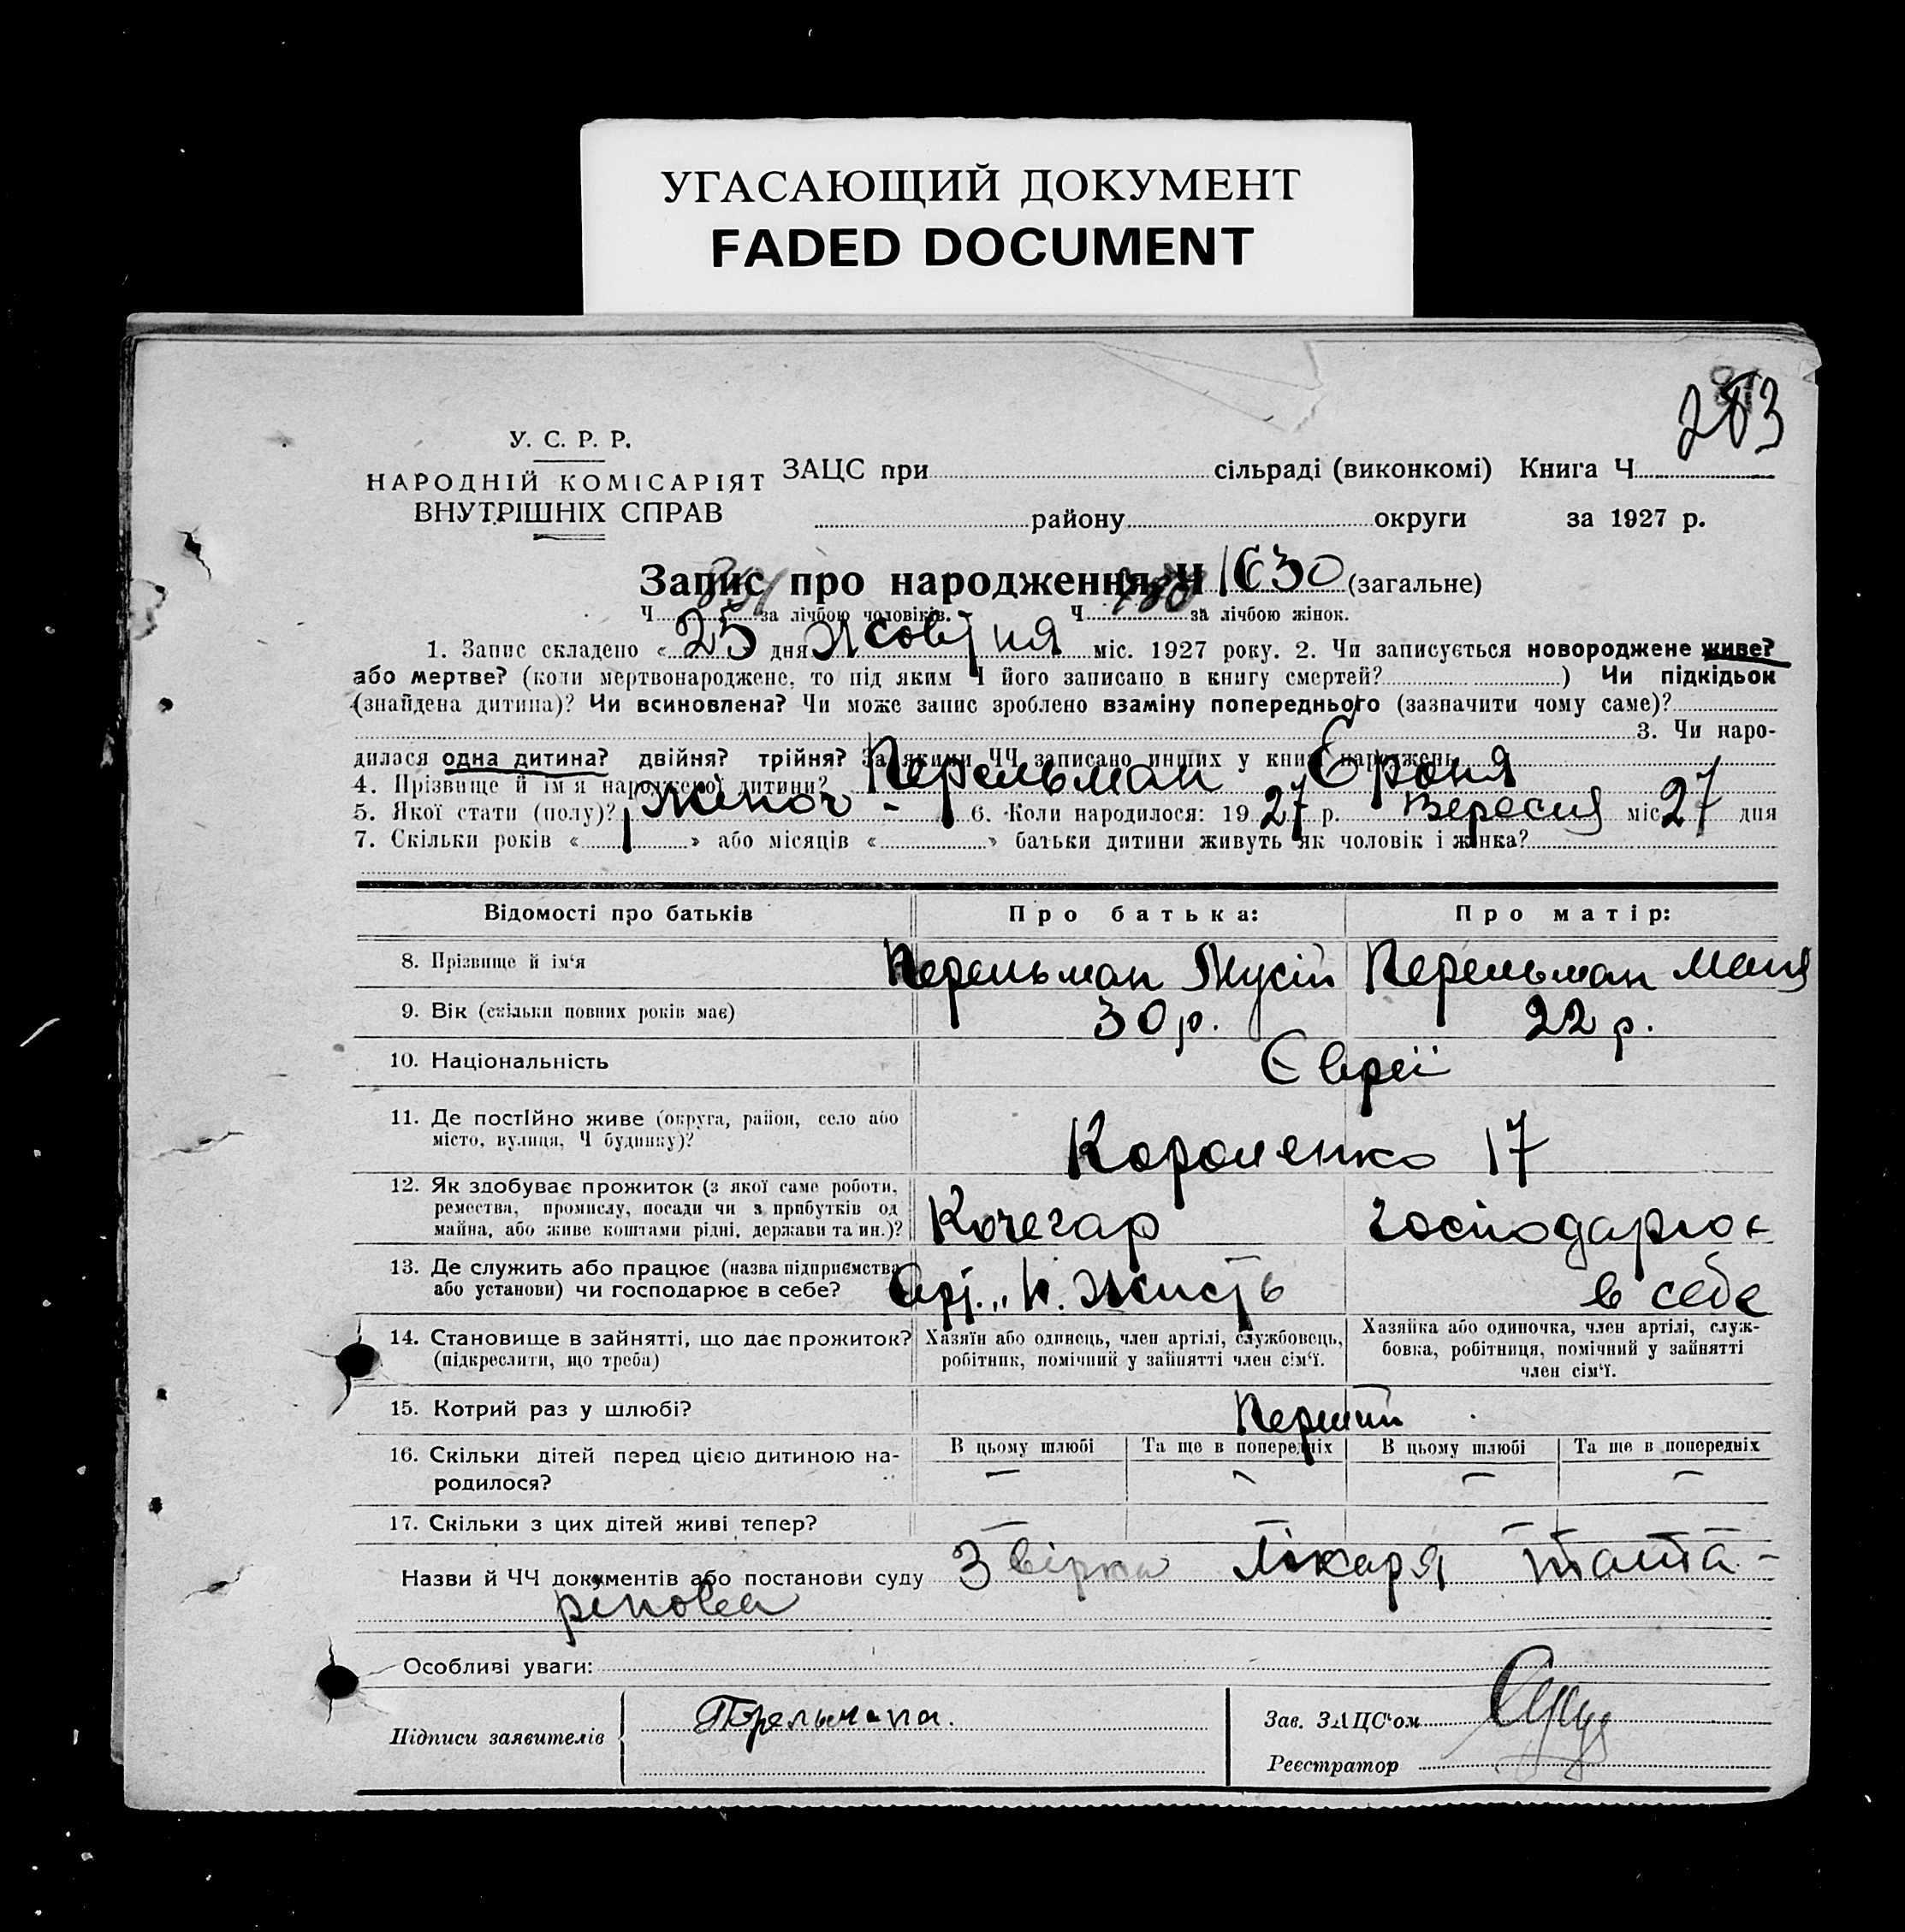 УГАСАЮЩИЙ ДОКУМЕНТ
FADED DOCUMENT
283
У. С. Р. Р.
НАРОДНІЙ КОМІСАРІЯТ
ВНУТРІШНІХ СПРАВ
ЗАЦС при сільраді (виконкомі) Книга Ч.
району округи за 1927 р.
Запис про народження Ч 1630 (загальне)
Ч. за лічбою чоловіків. Ч. за лічбою жінок.
1. Запис складено « 25 дня Жовтня міс. 1927 року. 2. Чи записується новороджене живе?
або мертве? (коли мертвонароджене, то під яким Ч його записано в книгу смертей? ) Чи підкідьок
(знайдена дитина)? Чи всиновлена? Чи може запис зроблено взаміну попереднього (зазначити чому саме)?
3. Чи наро-
дилася одна дитина? двійня? трійня? За якими ЧЧ записано инших у книзі народжень
4. Прізвище й ім'я народженої дитини? Перельман Броня
5. Якої стати (полу)? жіноч - 6. Коли народилося: 19 27 р. Вересня міс 27 дня
7. Скільки років « » або місяців « » батьки дитини живуть як чоловік і жінка?
Відомості про батьків Про батька: Про матір:
8. Прізвище й ім'я Перельман Мусій Перельман Маня
9. Вік (скільки повних років має) 30 р. 22 р.
10. Національність Євреї
11. Де постійно живе (округа, район, село або
місто, вулиця, Ч будинку)? Короленко 17
12. Як здобуває прожиток (з якої саме роботи,
ремества, промислу, посади чи з прибутків од
майна, або живе коштами рідні, держави та ин.)? Кочегар господарює
13. Де служить або працює (назва підприємства
або установи) чи господарює в себе? Арт. „Н. Жисть в себе
14. Становище в зайнятті, що дає прожиток?
(підкреслити, що треба)
Хазяїн або одинець, член артілі, службовець,
робітник, помічний у зайнятті член сім'ї.
Хазяйка або одиночка, член артілі, служ-
бовка, робітниця, помічний у зайнятті
член сім'ї.
15. Котрий раз у шлюбі? Перший
16. Скільки дітей перед цією дитиною на-
родилося?
В цьому шлюбі Та ще в попередніх В цьому шлюбі Та ще в попередніх
— — — —
17. Скільки з цих дітей живі тепер? — — — —
Назви й ЧЧ документів або постанови суду Звірка Лікаря Тата-
рінова
Особливі уваги:
Підписи заявителів Перельмана.
Зав. ЗАЦС'ом
Реєстратор